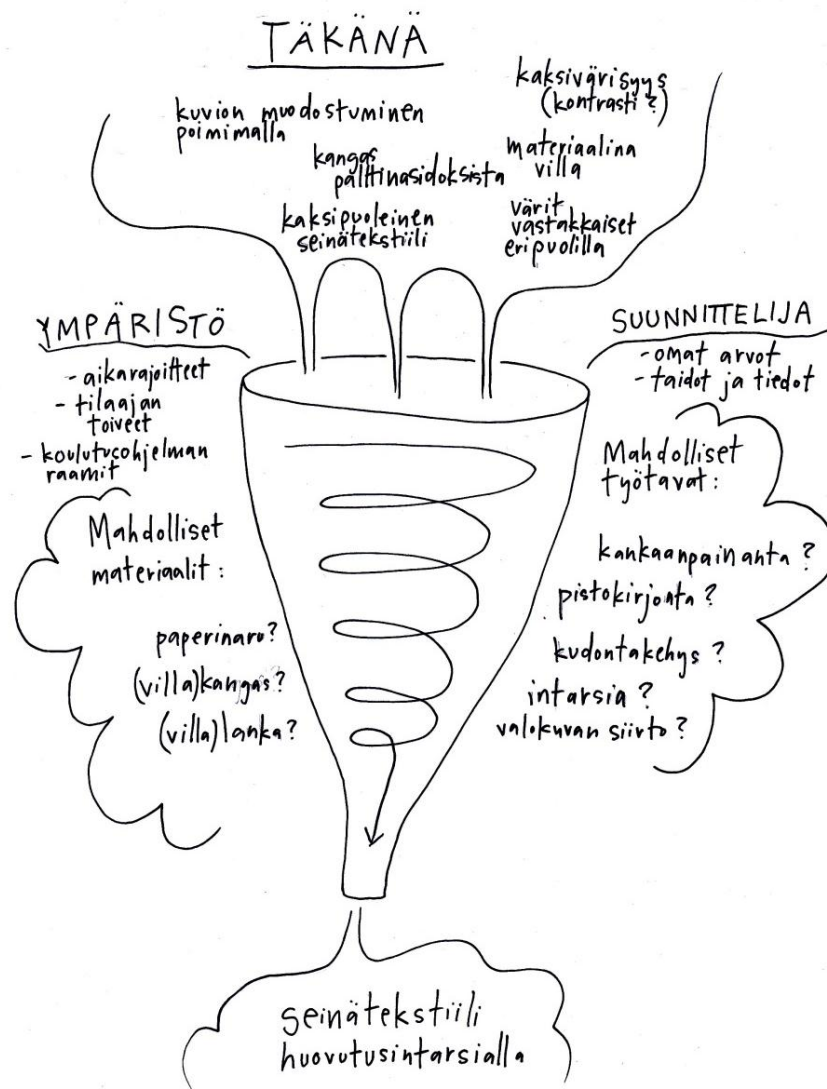 TÄKÄNÄ
kuvion muodostuminen
poimimalla
kangas
palttinasidoksista
kaksipuoleinen
seinätekstiili
kaksivärisyys
(kontrasti?)
materiaalina
villa
värit
vastakkaiset
eripuolilla
YMPÄRISTÖ
- aikarajoitteet
- tilaajan
toiveet
- koulutusohjelman
raamit
SUUNNITTELIJA
- omat arvot
- taidot ja tiedot
Mahdolliset
materiaalit:
paperinaru?
(villa)kangas?
(villa)lanka?
Mahdolliset
työtavat:
kankaanpainanta?
pistokirjonta?
kudontakehys?
intarsia?
valokuvan siirto?
seinätekstiili
huovutusintarsialla